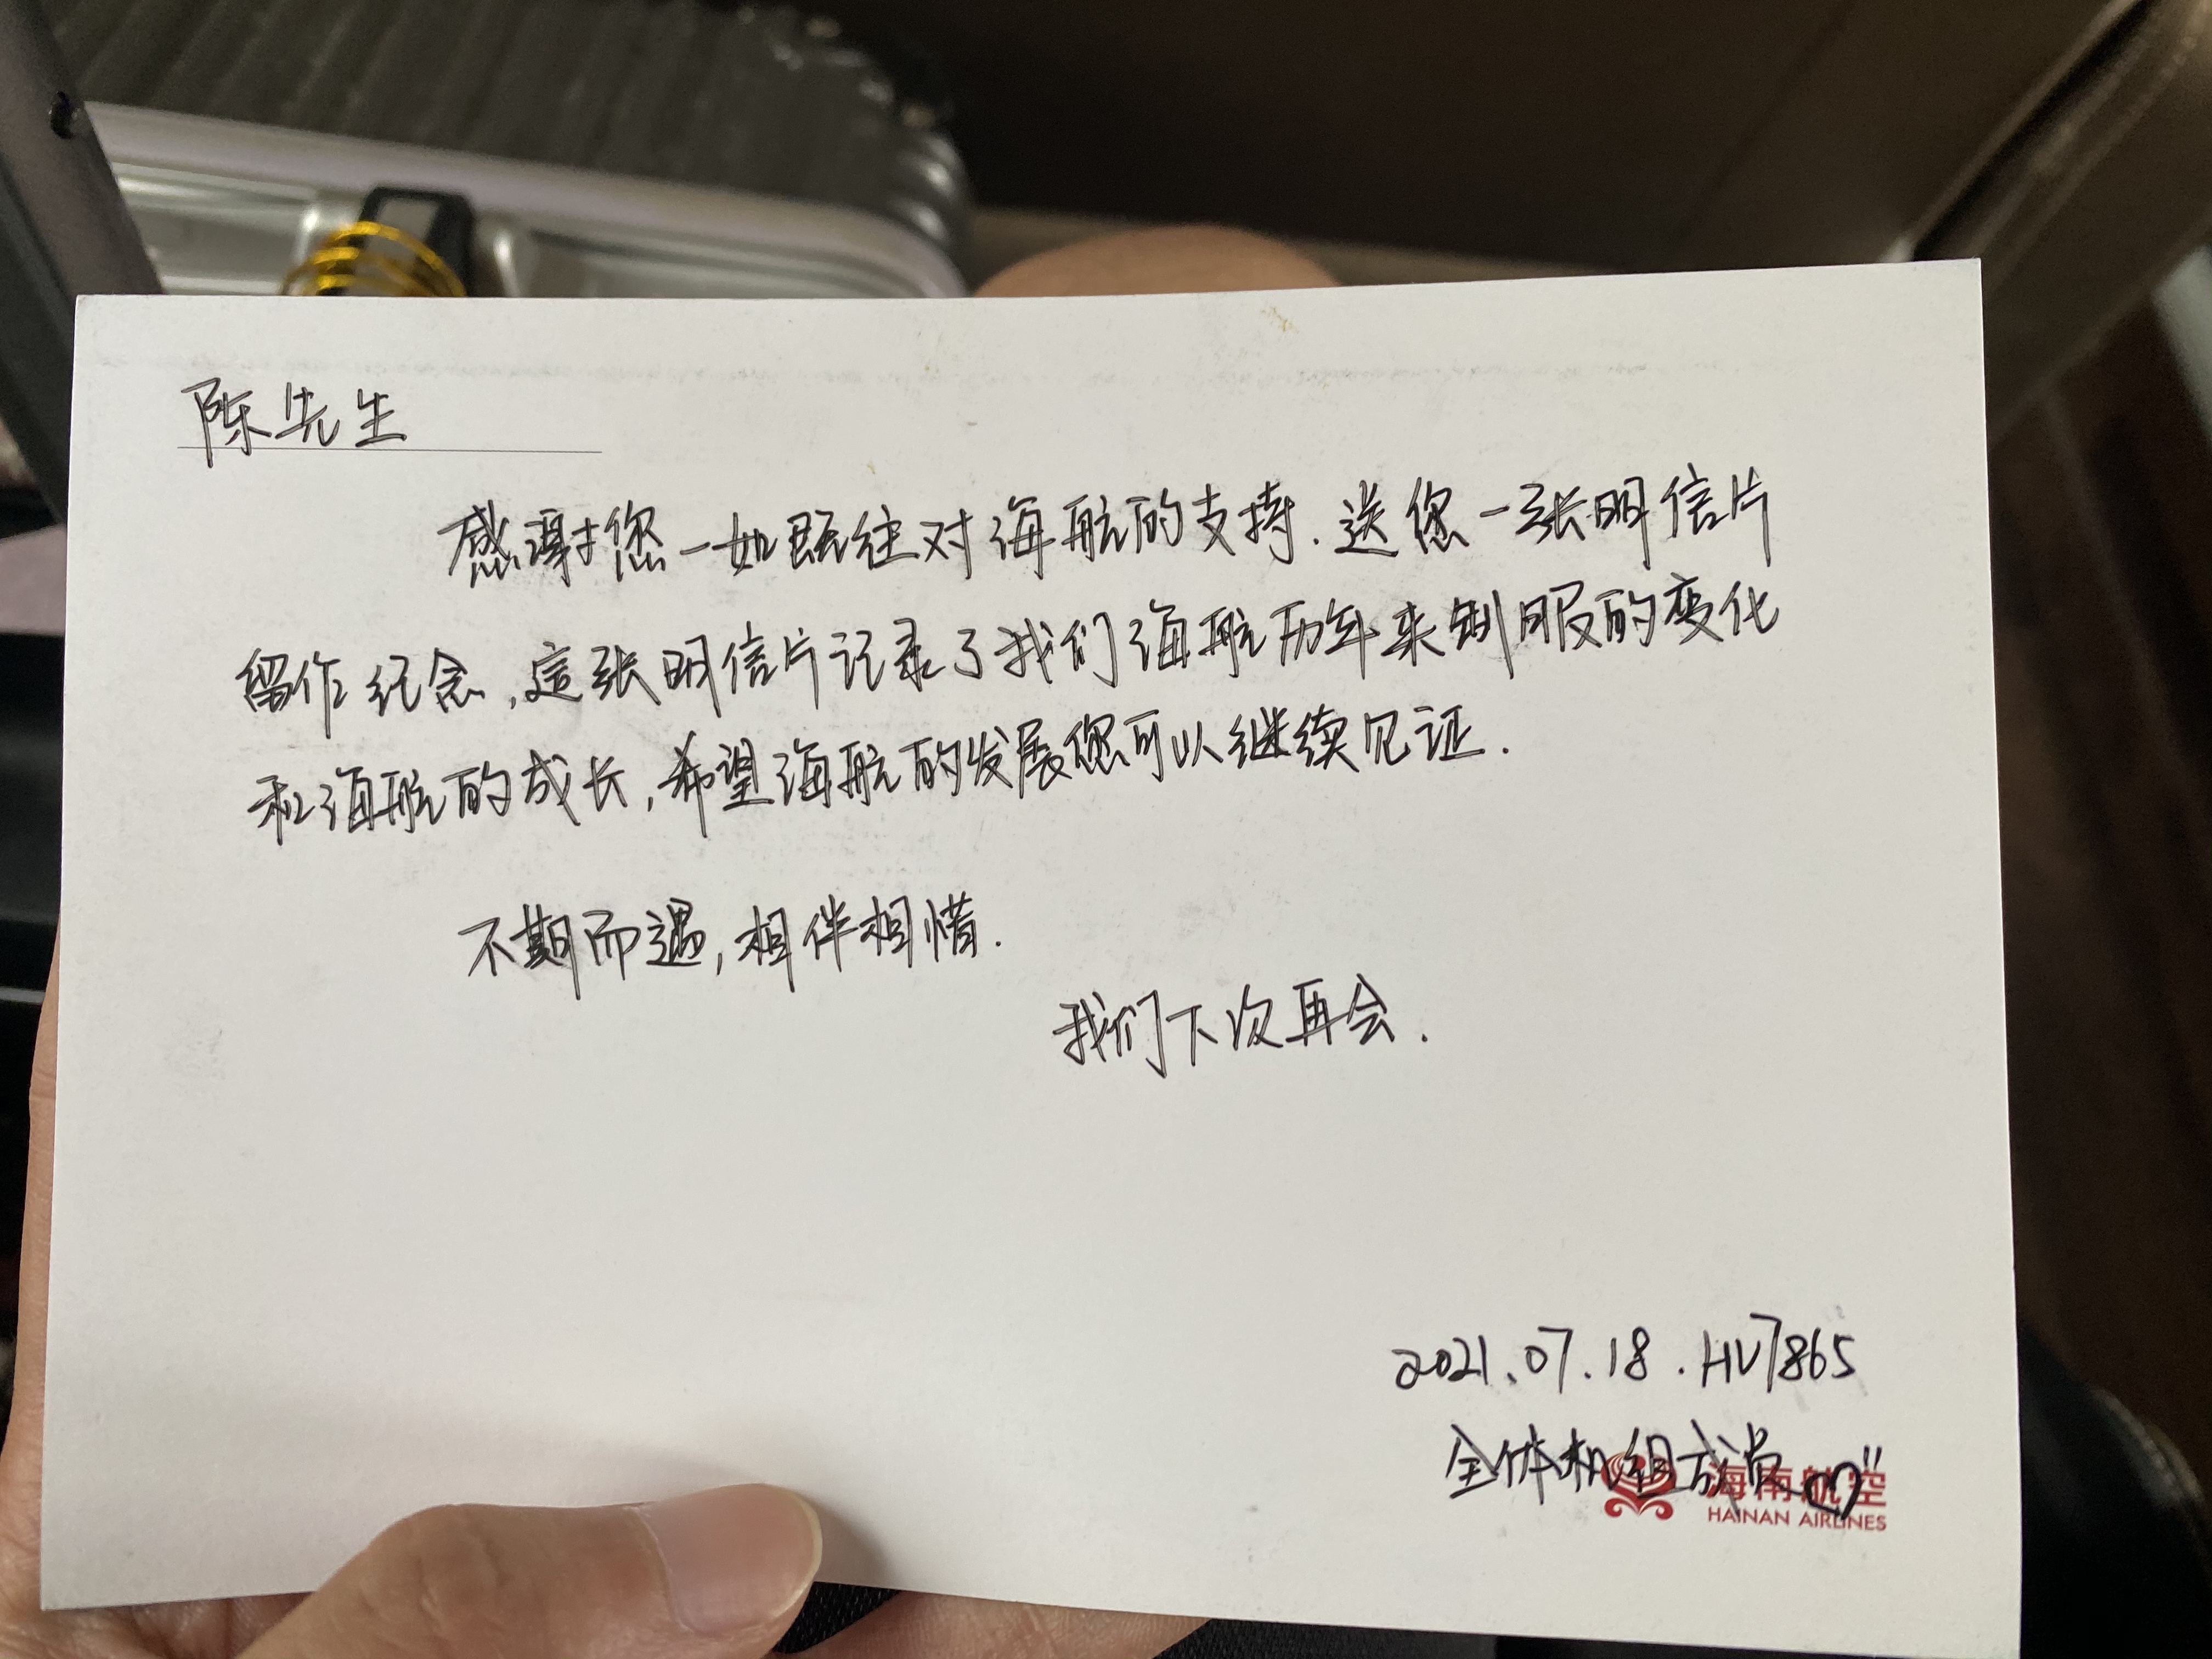 陈先生
感谢您一如既往对海航的支持.送您一张明信片
留作纪念,這张明信片记录了我们海航历年来制服的变化
和海航的成长,希望海航的发展您可以继续见证.
不期而遇,相伴相惜.
我们下次再会.
2021.07.18.HU7865
全体机组成员
海南航空
HAINAN AIRLINES